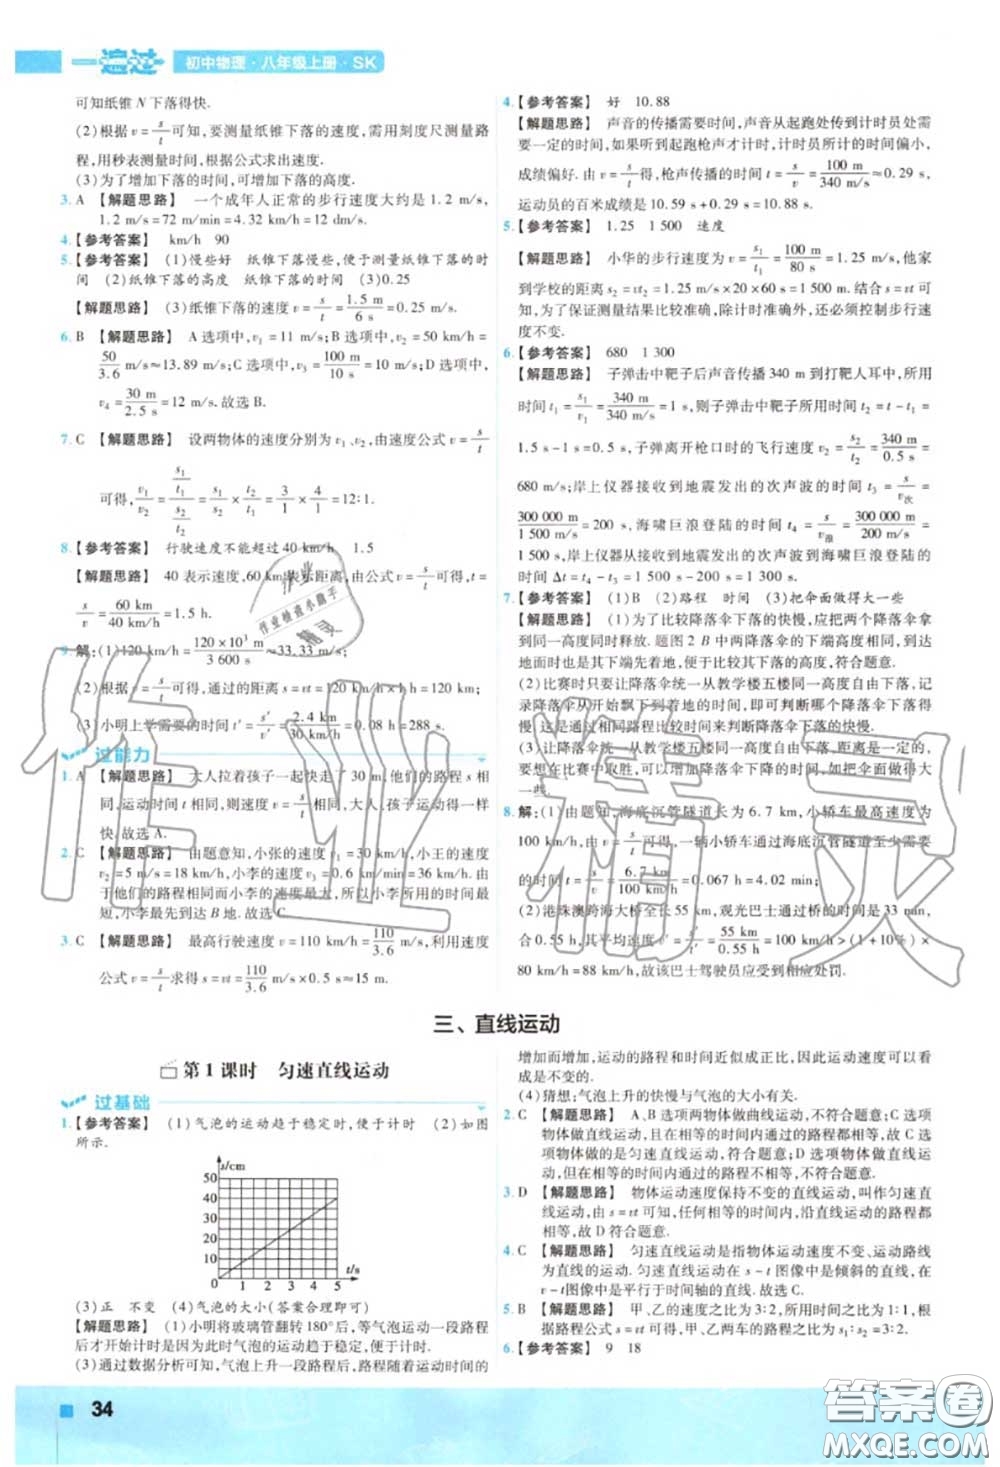 一遍过 初中物理·八年级上册·SK
可知纸锥 N 下落得快.
(2)根据 v = s/t 可知,要测量纸锥下落的速度,需用刻度尺测量路
程,用秒表测量时间,根据公式求出速度.
(3)为了增加下落的时间,可增加下落的高度.
3. A 【解题思路】 一个成年人正常的步行速度大约是 1.2 m/s,
1.2 m/s = 72 m/min = 4.32 km/h = 12 dm/s.
4.【参考答案】 km/h 90
5.【参考答案】 (1)慢些好 纸锥下落慢些,便于测量纸锥下落的时
间 (2)纸锥下落的高度 纸锥下落的时间 (3)0.25
【解题思路】 (3)纸锥下落的速度 v = s/t = 1.5 m/6 s = 0.25 m/s.
6. B 【解题思路】 A 选项中,v₁ = 11 m/s;B 选项中,v₂ = 50 km/h =
50/3.6 m/s ≈ 13.89 m/s;C 选项中,v₃ = 100 m/10 s = 10 m/s;D 选项中,
v₄ = 30 m/2.5 s = 12 m/s.故选 B.
7. C 【解题思路】 设两物体的速度分别为 v₁、v₂,由速度公式 v = s/t
可得, v₁/v₂ = (s₁/t₁)/(s₂/t₂) = s₁/s₂ × t₂/t₁ = 3/1 × 4/1 = 12∶1.
8.【参考答案】 行驶速度不能超过 40 km/h 1.5
【解题思路】 40 表示速度,60 km 表示距离,由公式 v = s/t 可得, t =
s/v = 60 km/40 km/h = 1.5 h.
9. 解:(1)120 km/h = 120 × 10³ m/3 600 s ≈ 33.33 m/s;
(2)根据 v = s/t 可得,通过的距离 s = vt = 120 km/h × 1 h = 120 km;
(3)小明上学需要的时间 t′ = s′/v′ = 2.4 km/30 km/h = 0.08 h = 288 s.
过能力
1. A 【解题思路】 大人拉着孩子一起快走了 30 m,他们的路程 s 相
同,运动时间 t 相同,则速度相同,大人、孩子运动得一样
快.故选 A.
2. C 【解题思路】 由题意知,小张的速度 v₁ = 30 km/h,小王的速度
v₂ = 5 m/s = 18 km/h,小李的速度 v₃ = 0.6 km/min = 36 km/h.由
于他们的路程相同而小李的速度最大,所以小李所用的时间最
短,小李最先到达 B 地.故选 C.
3. C 【解题思路】 最高行驶速度 v = 110 km/h = 110/3.6 m/s,利用速度
公式 v = s/t 求得 s = vt = 110/3.6 m/s × 0.5 s ≈ 15 m.
4.【参考答案】 好 10.88
【解题思路】 声音的传播需要时间,声音从起跑处传到计时员处需
要一定的时间,如果听到起跑枪声才计时,计时员所计时间偏小,
成绩偏好.由 v = s/t 可得,枪声传播的时间 t = s/v = 100 m/340 m/s ≈ 0.29 s,
运动员的百米成绩是 10.59 s + 0.29 s = 10.88 s.
5.【参考答案】 1.25 1 500 速度
【解题思路】 小华的步行速度 v = s₁/t₁ = 100 m/80 s = 1.25 m/s,他家
到学校的距离 s₂ = vt₂ = 1.25 m/s × 20 × 60 s = 1 500 m.结合 s = vt 可
知,为了保证测量结果比较准确,除计时准确外,还必须控制步行速
度不变.
6.【参考答案】 680 1 300
【解题思路】 子弹击中靶子后声音传播 340 m 到打靶人耳中,所用
时间 t₁ = s₁/v₁ = 340 m/340 m/s = 1 s,则子弹击中靶子所用时间 t₂ = t − t₁ =
1.5 s − 1 s = 0.5 s,子弹离开枪口时的飞行速度 v₂ = s₂/t₂ = 340 m/0.5 s =
680 m/s;岸上仪器接收到地震发出的次声波的时间 t₃ = s/v次 =
300 000 m/1 500 m/s = 200 s,海啸巨浪登陆的时间 t₄ = s/v浪 = 300 000 m/200 m/s =
1 500 s,岸上仪器从接收到地震发出的次声波到海啸巨浪登陆的
时间 Δt = t₄ − t₃ = 1 500 s − 200 s = 1 300 s.
7.【参考答案】 (1)B (2)路程 时间 (3)把伞面做得大一些
【解题思路】 (1)为了比较降落伞下落的快慢,应把降落伞同时拿
到同一高度同时释放.题图 2 B 中两降落伞的下端高度相同,到达
地面时也是其下端先着地,便于比较其下落的高度,符合题意.
(2)比赛时只要让降落伞统一从教学楼五楼同一高度自由下落,记
录降落伞从开始飘下到着地的时间,即可判断哪个降落伞下落得
慢,这是通过相同路程比较时间来判断降落伞下落的快慢.
(3)让降落伞统一从教学楼五楼自由下落,距离是一定的,
要想在比赛中取胜,可以增加降落伞下降的时间,如把伞面做得大
一些.
8. 解:(1)由题知,海底沉管隧道长为 6.7 km,小轿车最高速度为
100 km/h,由 v = s/t 可得,一辆小轿车通过海底沉管隧道至少需要
的时间 t = s/v = 6.7 km/100 km/h = 0.067 h = 4.02 min;
(2)港珠澳跨海大桥全长 55 km,观光巴士通过桥的时间为 33 min,
合 0.55 h,其平均速度 v′ = s′/t′ = 55 km/0.55 h = 100 km/h > (1 + 10%) ×
80 km/h = 88 km/h,故该巴士驾驶员应受到相应处罚.
三、直线运动
第 1 课时 匀速直线运动
过基础
1.【参考答案】 (1)气泡的运动趋于稳定时,便于计时 (2)如图
所示.
s/cm
50
40
30
20
10
0 1 2 3 4 5 t/s
(3)正 不变 (4)气泡的大小(答案合理即可)
【解题思路】 (1)小明将玻璃管翻转 180°后,等气泡运动一段路程
后才开始计时是因为此时气泡的运动趋于稳定,便于计时.
(3)通过数据分析可知,气泡上升一段路程后,路程随着运动时间的
增加而增加,运动的路程和时间近似成正比,因此运动速度可以看
成是不变的.
(4)猜想:气泡上升的快慢与气泡的大小有关.
2. C 【解题思路】 A、B 选项两物体做曲线运动,不符合题意;C 选项
物体做直线运动,且在相等的时间内通过的路程都相等,故 C 选
项物体做的是匀速直线运动,符合题意;D 选项物体做直线运
动,但在相等的时间内通过的路程不相等,不符合题意.
3. D 【解题思路】 物体运动速度保持不变的直线运动,叫作匀速直
线运动,由 s = vt 可知,任何相等的时间内,沿直线运动的路程都
相等,故 D 符合题意.
4. C 【解题思路】 匀速直线运动是指物体运动速度不变、运动路线
为直线的运动.匀速直线运动在 s − t 图像中是倾斜的直线,
在 v − t 图像中是平行于时间轴的直线.故选 C.
5. B 【解题思路】 甲、乙的速度之比为 3∶2,所用时间之比为 2∶1,根
据路程公式 s = vt 可得,甲、乙两车的路程之比 s甲∶s乙 = 3∶1.
6.【参考答案】 9 18
34
作业精灵
作业
作业检查小助手
精灵
答案圈
MXQE.COM